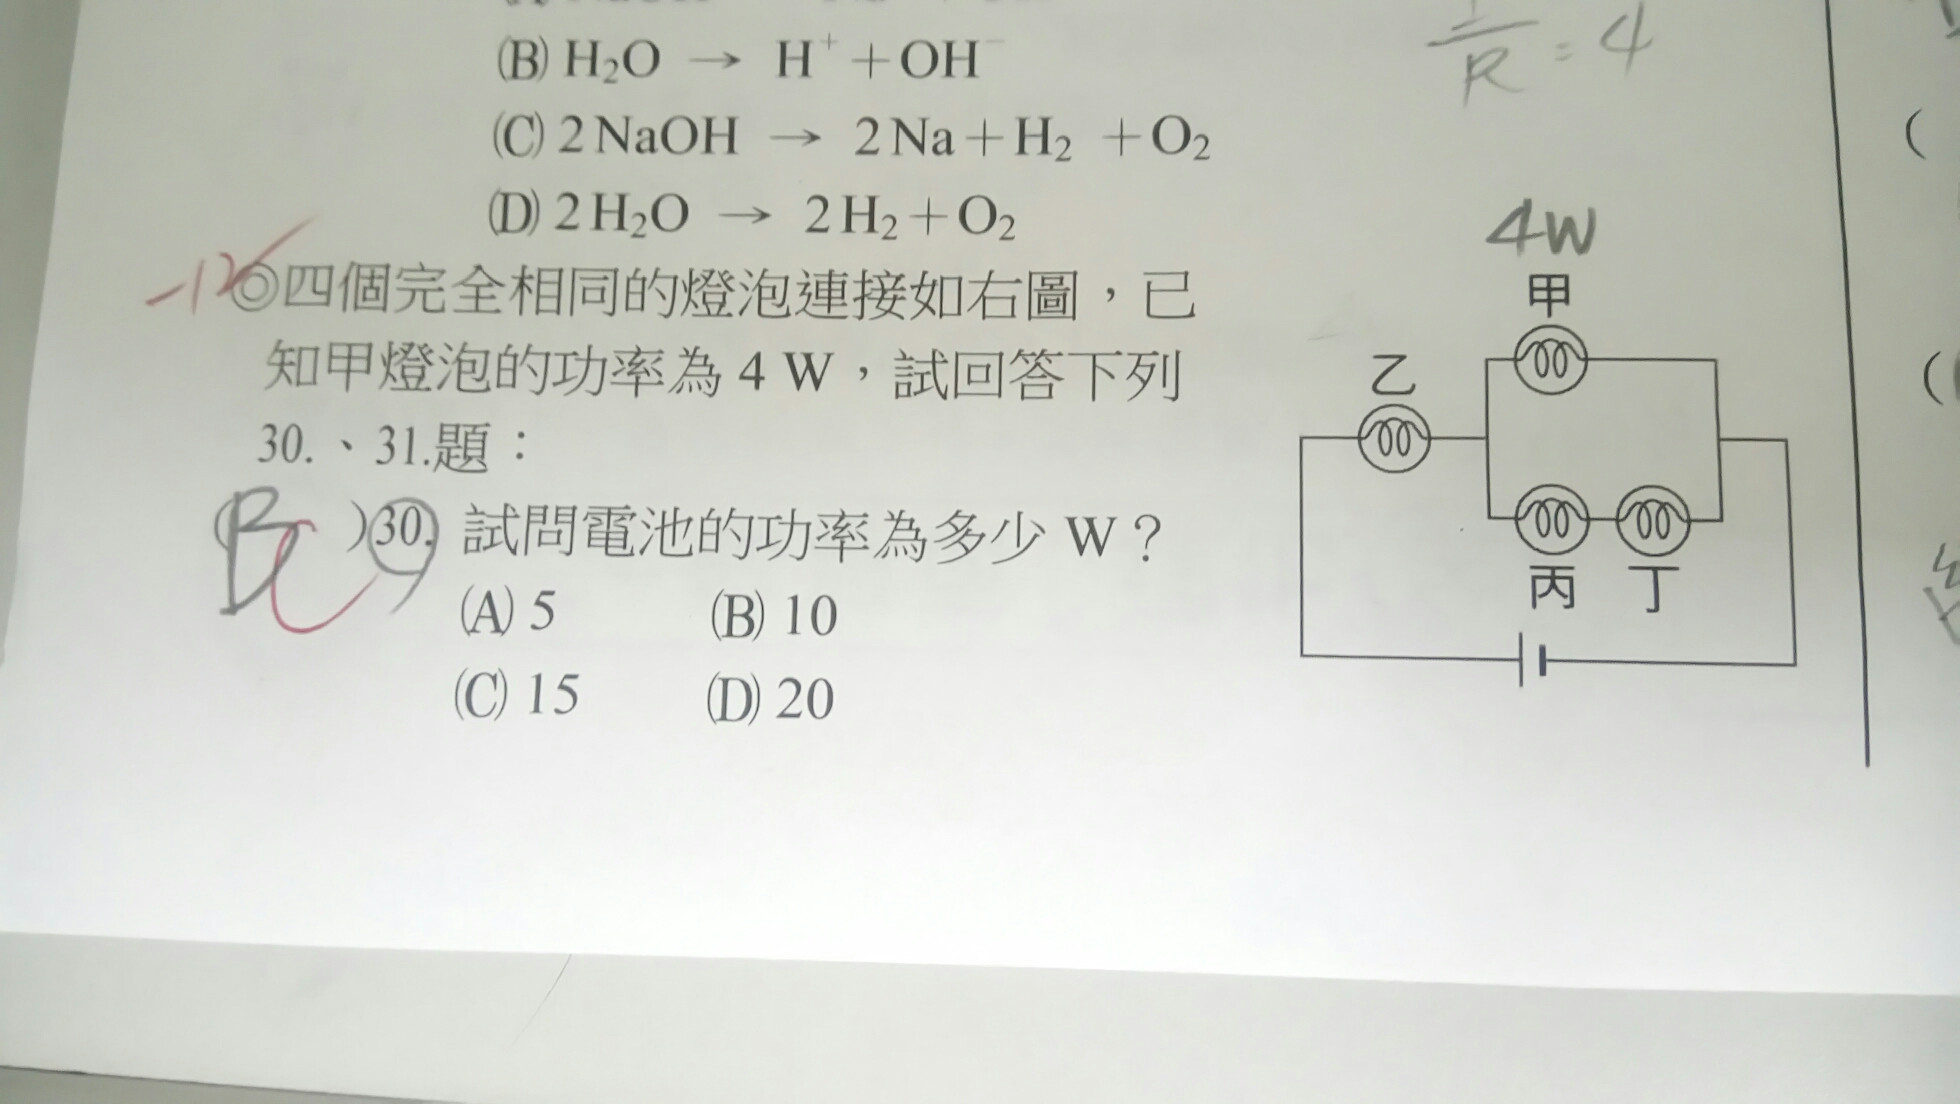 (B) H₂O → H⁺ + OH⁻
(C) 2 NaOH → 2 Na + H₂ + O₂
(D) 2 H₂O → 2 H₂ + O₂
◎四個完全相同的燈泡連接如右圖，已
知甲燈泡的功率為 4 W，試回答下列
30.、31.題：
(B C )30. 試問電池的功率為多少 W？
(A) 5 (B) 10
(C) 15 (D) 20
R = 4
4W
甲
乙
丙 丁